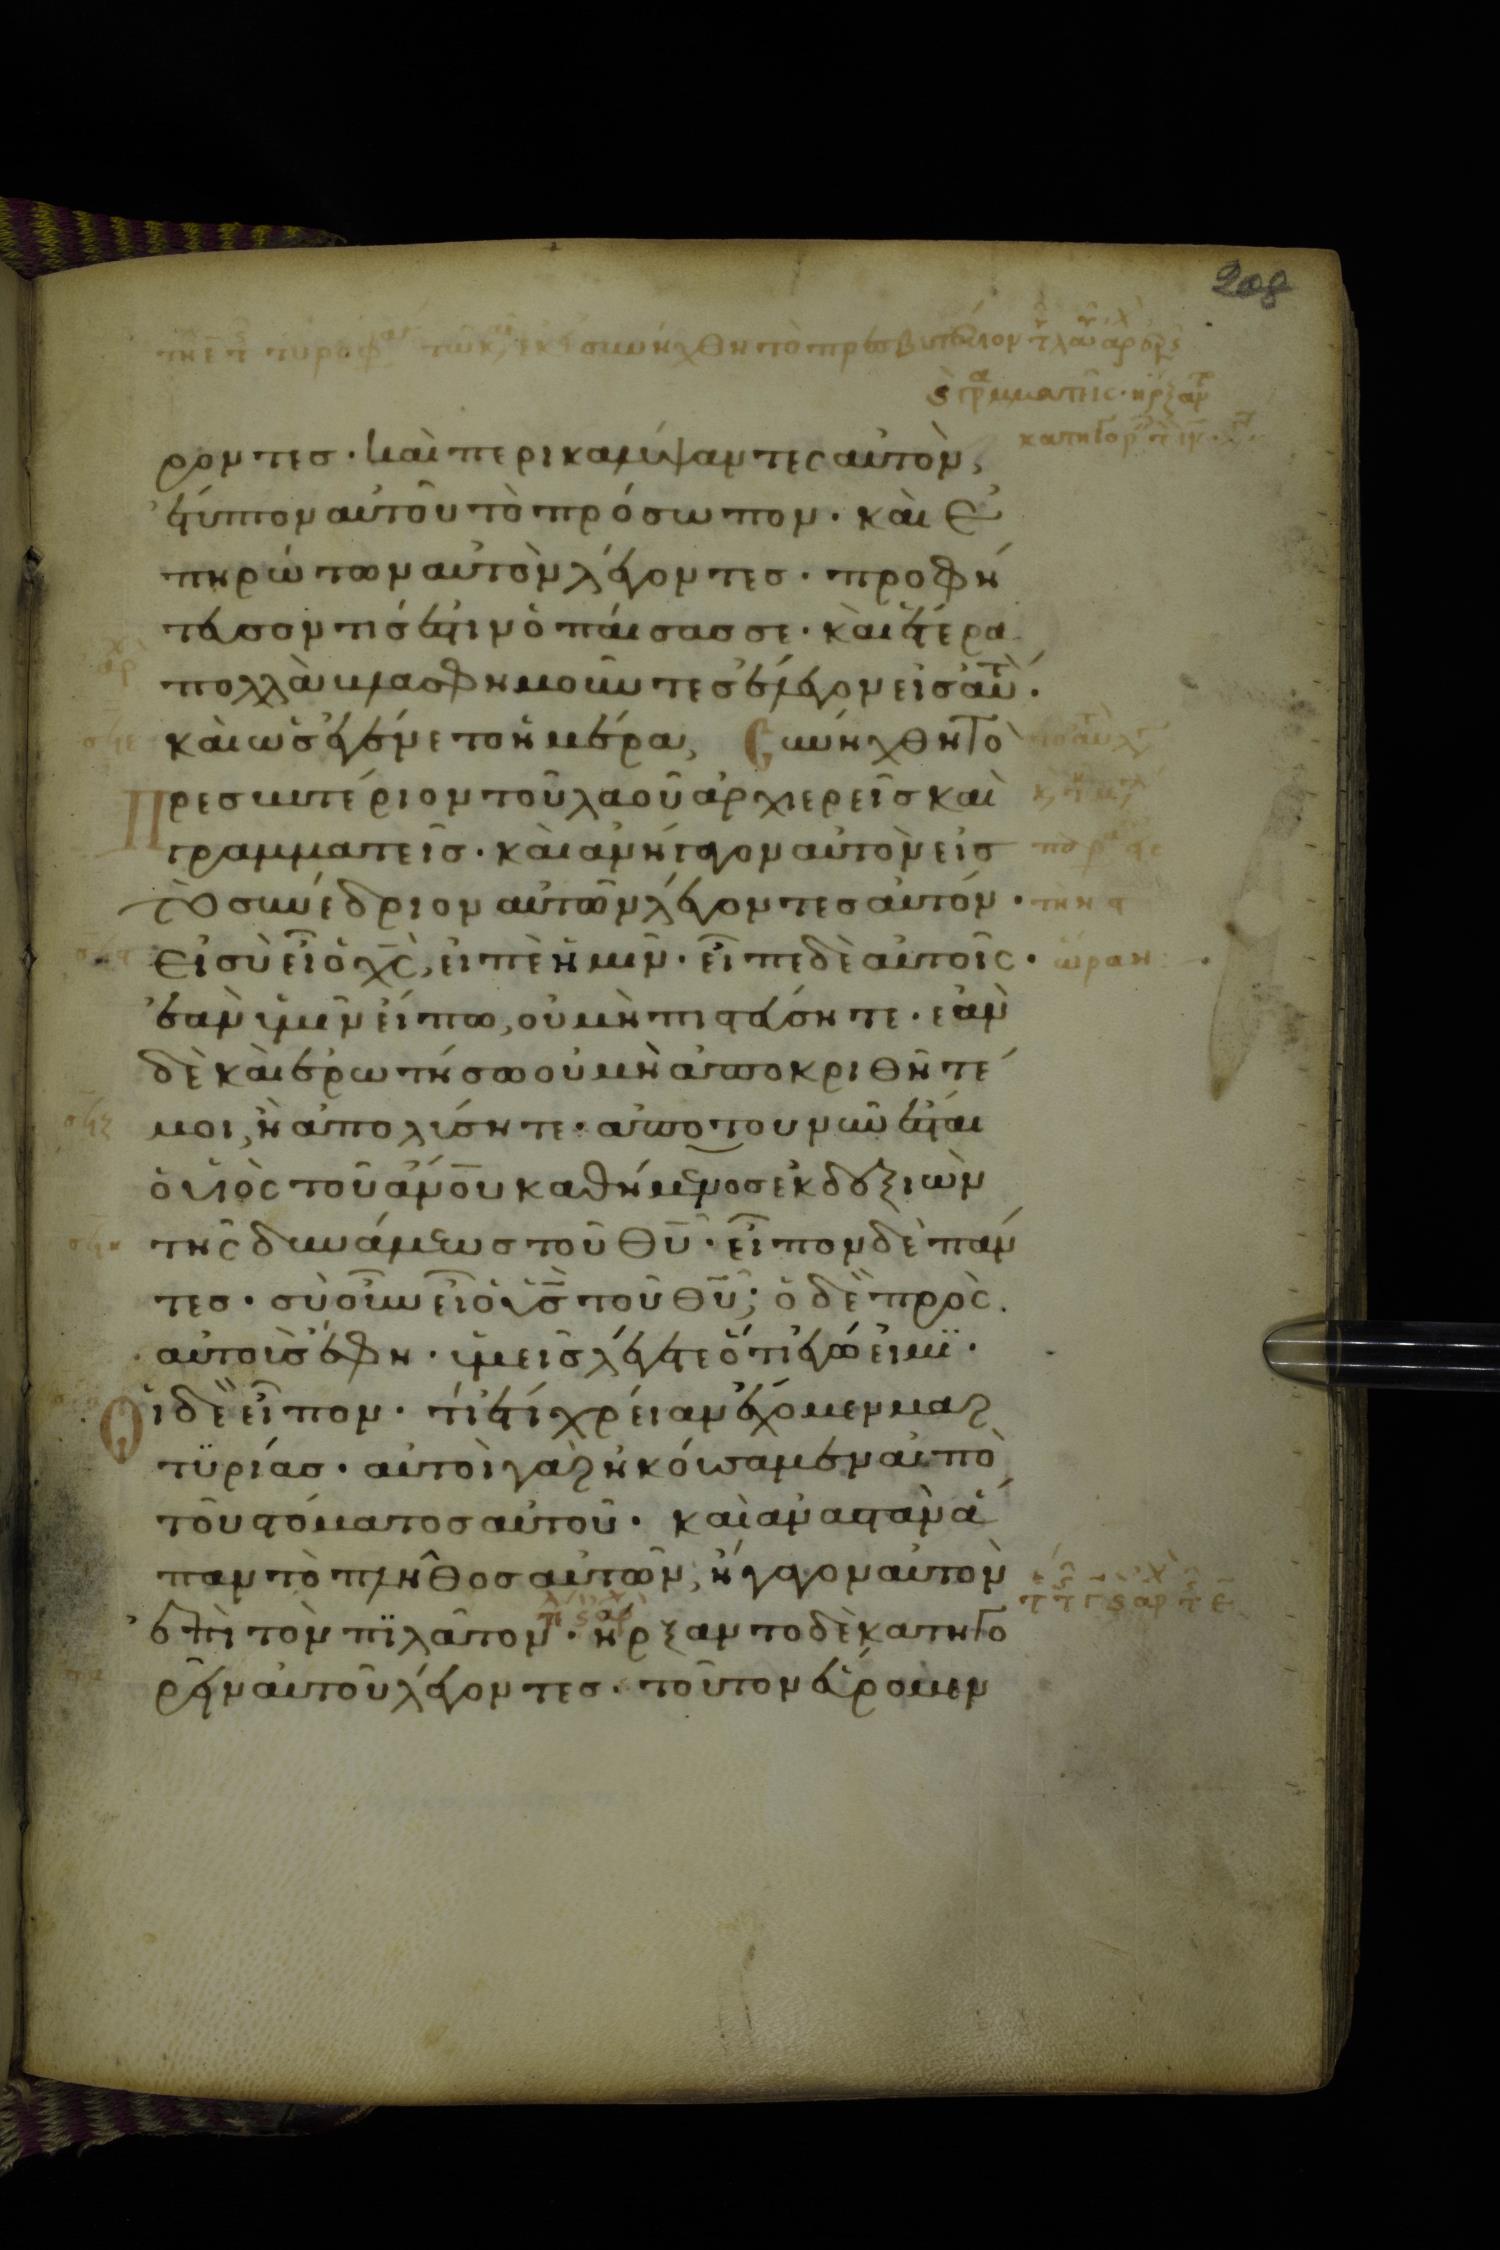 208
συνήχθη τὸ πρεσβυτέριον τ λα αρχ
ς γραμματεῖς · ἠρξαντ
κατηγορ
ροντες · καὶ περικαλύψαντες αὐτὸν,
ἔτυπτον αὐτοῦ τὸ πρόσωπον · καὶ ἐ
πηρώτων αὐτὸν λέγοντες · προφή
τευσον τίς ἐστιν ὁ παίσας σε · καὶ ἕτερα
πολλὰ βλασφημοῦντες ἔλεγον εἰς αὐτ ·
καὶ ὡς ἐγένετο ἡμέρα, Συνήχθη τὸ
Πρεσβυτέριον τοῦ λαοῦ ἀρχιερεῖς καὶ
γραμματεῖς · καὶ ἀνήγαγον αὐτὸν εἰς
τὸ συνέδριον αὐτῶν λέγοντες αὐτόν ·
Εἰ σὺ εἶ ὁ χς, εἰπὲ ἡμῖν · εἶπε δὲ αὐτοῖς ·
ἐὰν ὑμῖν εἴπω, οὐ μὴ πιστεύσητε · ἐὰν
δὲ καὶ ἐρωτήσω οὐ μὴ ἀποκριθῆτέ
μοι, ἢ ἀπολύσητε · ἀπο του νῦν ἔσται
ὁ υἱὸς τοῦ ἀνου καθήμενος ἐκ δεξιῶν
τῆς δυνάμεως τοῦ θυ · εἶπον δὲ πάν
τες · σὺ οὖν εἶ ὁ υς τοῦ θυ; ὁ δὲ πρὸς
αὐτοὺς ἔφη · ὑμεῖς λέγετε ὅτι ἐγώ εἰμϊ ·
Οἱ δὲ εἶπον · τί ἔτι χρείαν ἔχομεν μαρ
τϋρίας · αὐτοὶ γὰρ ἠκούσαμεν ἀπὸ
τοῦ στόματος αὐτοῦ · καὶ ἀναστὰν ἅ
παν τὸ πλῆθος αὐτῶν, ἤγαγον αὐτὸν
ἐπὶ τὸν πϊλᾶτον · ἤρξαντο δὲ κατηγο
ρεῖν αὐτοῦ λέγοντες · τοῦτον εὕρομεν
ὥραν